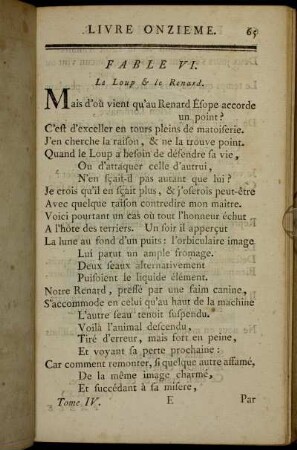 LIVRE ONZIEME. 65
FABLE VI.
Le Loup & le Renard.
Mais d'où vient qu'au Renard Ésope accorde
un point?
C'est d'exceller en tours pleins de matoiserie.
J'en cherche la raison, & ne la trouve point.
Quand le Loup a besoin de défendre sa vie,
Ou d'attaquer celle d'autrui,
N'en sçait-il pas autant que lui?
Je crois qu'il en sçait plus, & j'oserois peut-être
Avec quelque raison contredire mon maitre.
Voici pourtant un cas où tout l'honneur échut
A l'hôte des terriers. Un soir il apperçut
La lune au fond d'un puits: l'orbiculaire image
Lui parut un ample fromage.
Deux seaux alternativement
Puisoient le liquide élément.
Notre Renard, pressé par une faim canine,
S'accommode en celui qu'au haut de la machine
L'autre seau tenoit suspendu.
Voilà l'animal descendu,
Tiré d'erreur, mais fort en peine,
Et voyant sa perte prochaine:
Car comment remonter, si quelque autre affamé,
De la même image charmé,
Et succédant à sa misere,
Tome IV. E Par